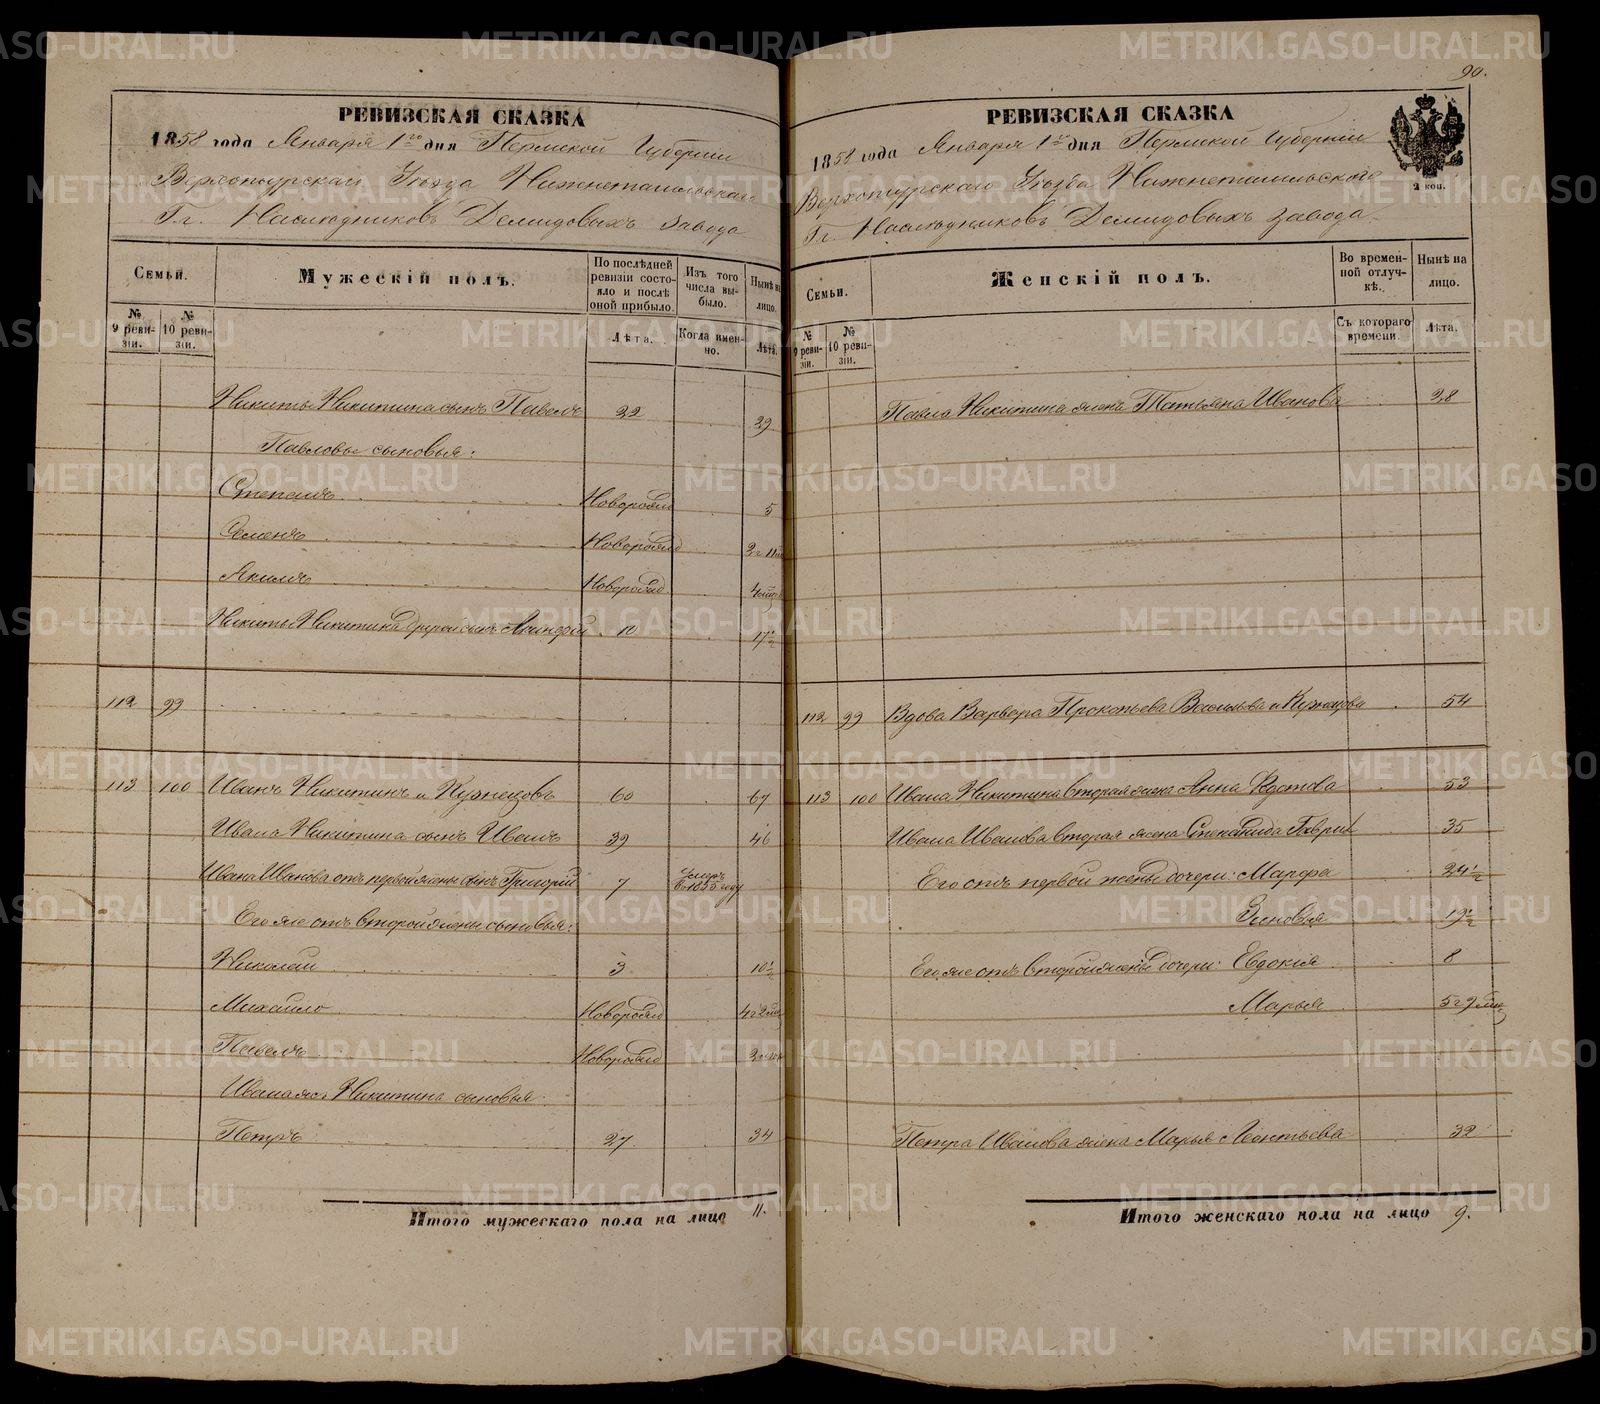 90.
РЕВИЗСКАЯ СКАЗКА
1858 года Января 1го дня Пермской Губерніи
Верхотурскаго Уѣзда Нижнетагильскаго
Гг. Наслѣдниковъ Демидовыхъ завода
Семьи.
Мужескій полъ.
По послѣдней ревизіи состояло и послѣ оной прибыло.
Изъ того числа выбыло.
Нынѣ на лицо.
№ 9 ревизіи.
№ 10 ревизіи.
Лѣта.
Когда именно.
Лѣта.
Никиты Никитина сынъ Павелъ 22 29
Павловы сыновья:
Степанъ Новорожд 5
Семенъ Новорожд 2 г 11 м
Якимъ Новорожд
Никиты Никитина другой сынъ 10 17½
112 99
113 100 Иванъ Никитинъ и Кузнецовъ 60 67
Ивана Никитина сынъ Иванъ 39 46
Ивана Иванова отъ первой жены сынъ Григорій 7 Умеръ въ 1855 году
Его же отъ второй жены сыновья:
Николай 3 10½
Михайло Новорожд
Павелъ Новорожд
Ивана же Никитина сыновья:
Петръ 27 34
Итого мужескаго пола на лицо 11.
РЕВИЗСКАЯ СКАЗКА
1858 года Января 1го дня Пермской Губерніи
Верхотурскаго Уѣзда Нижнетагильскаго
Гг. Наслѣдниковъ Демидовыхъ завода
2 коп.
Семьи.
Женскій полъ.
Во временной отлучкѣ.
Нынѣ на лицо.
№ 9 ревизіи.
№ 10 ревизіи.
Съ котораго времени.
Лѣта.
Павла Никитина жена Татьяна Иванова 28
112 99 Вдова Варвара Прокопьева Васильева и Кузнецова 54
113 100 Ивана Никитина вторая жена Анна 53
Ивана Иванова вторая жена Степанида Гаврил 35
Его отъ первой жены дочери: Марфа 24½
Зиновья 19½
Его же отъ второй жены дочери: Евдокія 8
Марья 5 г 9 мѣс
Петра Иванова жена Марья Леонтьева 32
Итого женскаго пола на лицо 9.
METRIKI.GASO-URAL.RU